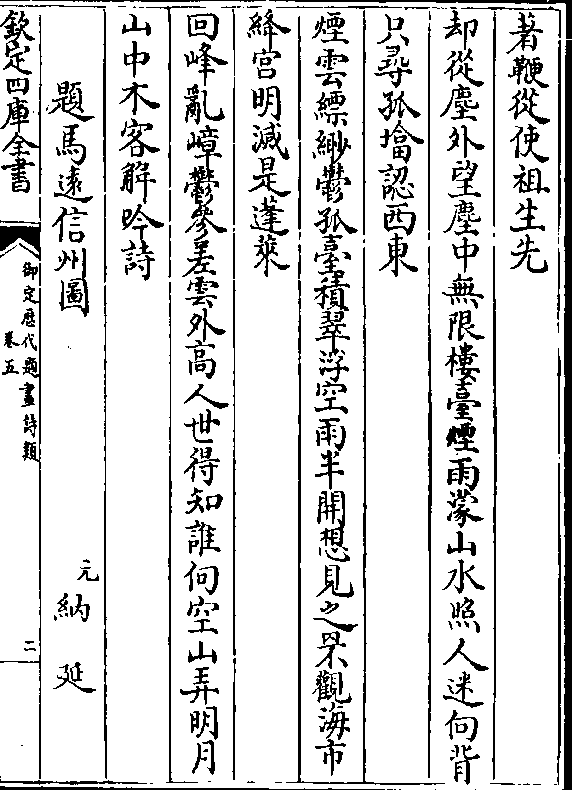 著鞭從使祖生先
却從塵外望塵中無限樓臺煙雨濛山水照人迷向背
只尋孤塔認西東
煙雲縹緲鬱孤臺積翠浮空雨半開想見之罘觀海市
絳宫明滅是蓬萊
回峰亂嶂鬱參差雲外高人世得知誰向空山弄明月
山中木客解吟詩
題馬遠信州圖
元 納延
欽定四庫全書
御定歷代題畫詩類
卷五
二